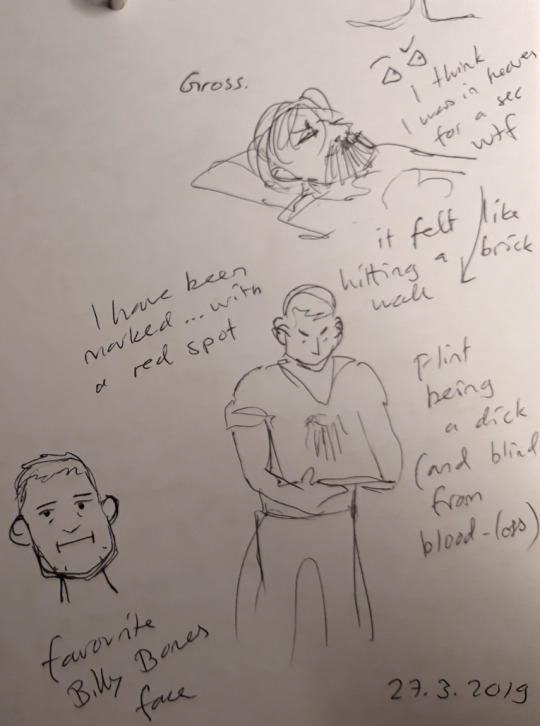 Gross.
I think
I was in heaven
for a sec
wtf
it felt like
hitting a brick
wall
I have been
marked ... with
a red spot
Flint
being
a dick
(and blind
from
blood-loss)
favourite
Billy Bones
face
27.3.2019